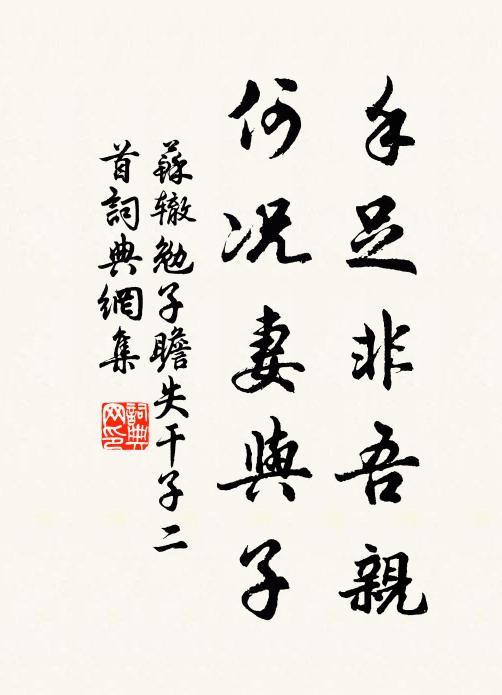 手足非吾親
何況妻與子
蘇轍勉子瞻失干子二
首詞典網集
詞典
网印